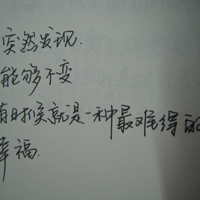 突然发现.
能够不变
有时候就是一种最难得的
幸福.